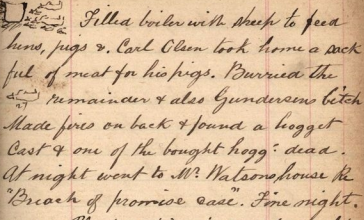 Filled boiler with sheep to feed
hens, pigs &. Carl Olsen took home a sack
ful of meat for his pigs. Burried the
remainder & also Gundersens bitch
Made fires on back & found a hogget
Cast & one of the bought hogg.s dead.
At night went to Mr. Watsons, house re
"Breach of promise case". Fine night.